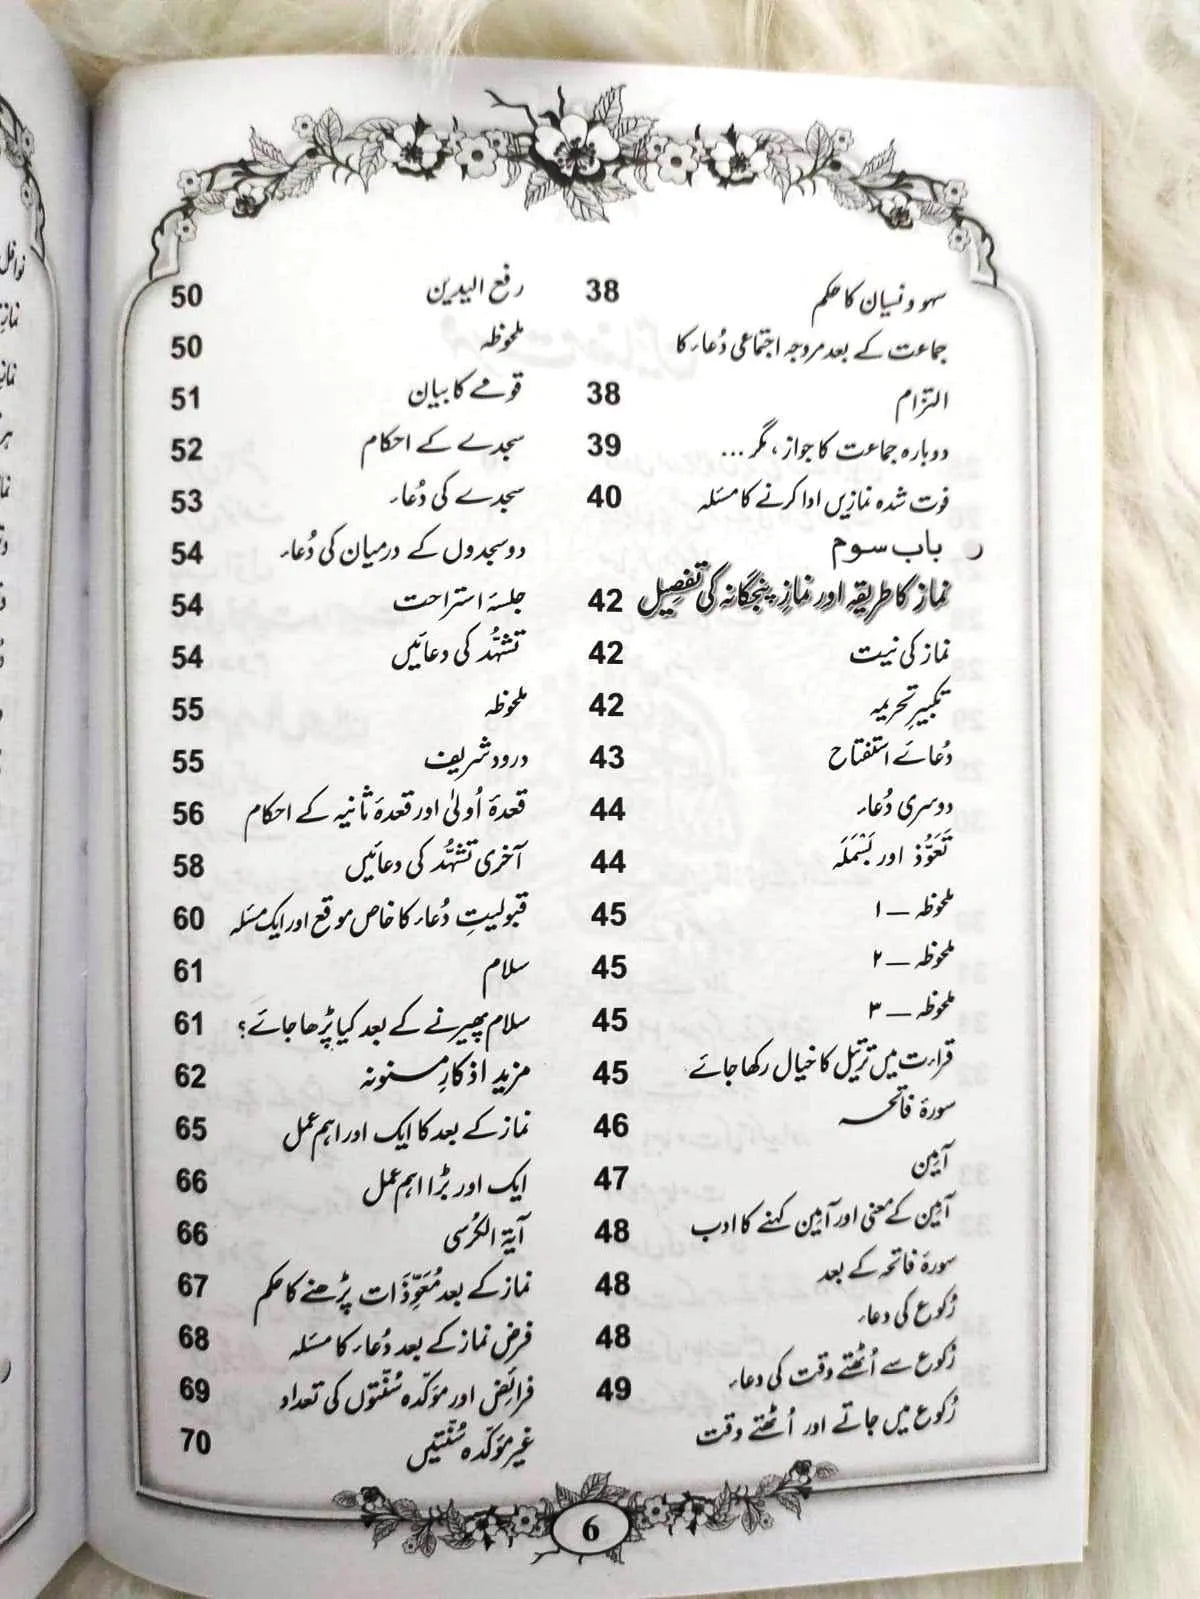 سہو و نسیان کا حکم 38
جماعت کے بعد مروجہ اجتماعی دُعاء کا
التزام 38
دوبارہ جماعت کا جواز، مگر ... 39
فوت شدہ نمازیں ادا کرنے کا مسئلہ 40
باب سوم
نماز کا طریقہ اور نمازِ پنجگانہ کی تفصیل 42
نماز کی نیت 42
تکبیرِ تحریمہ 42
دُعائے استفتاح 43
دوسری دُعاء 44
تَعَوُّذ اور بَسْمَلَہ 44
ملحوظہ ــ ۱ 45
ملحوظہ ــ ۲ 45
ملحوظہ ــ ۳ 45
قراءت میں ترتیل کا خیال رکھا جائے 45
سورۂ فاتحہ 46
آمین 47
آمین کے معنی اور آمین کہنے کا ادب 48
سورۂ فاتحہ کے بعد 48
رُکوع کی دعاء 48
رُکوع سے اُٹھتے وقت کی دعاء 49
رُکوع میں جاتے اور اُٹھتے وقت
رفع الیدین 50
ملحوظہ 50
قومے کا بیان 51
سجدے کے احکام 52
سجدے کی دُعاء 53
دو سجدوں کے درمیان کی دُعاء 54
جلسۂ استراحت 54
تشہُّد کی دعائیں 54
ملحوظہ 55
درود شریف 55
قعدۂ اُولیٰ اور قعدۂ ثانیہ کے احکام 56
آخری تشہُّد کی دعائیں 58
قبولیتِ دُعاء کا خاص موقع اور ایک مسئلہ 60
سلام 61
سلام پھیرنے کے بعد کیا پڑھا جائے؟ 61
مزید اذکارِ مسنونہ 62
نماز کے بعد کا ایک اور اہم عمل 65
ایک اور بڑا اہم عمل 66
آیۃ الکرسی 66
نماز کے بعد مُعَوِّذَات پڑھنے کا حکم 67
فرض نماز کے بعد دُعاء کا مسئلہ 68
فرائض اور مؤکّدہ سُنّتوں کی تعداد 69
غیر مؤکّدہ سُنّتیں 70
6